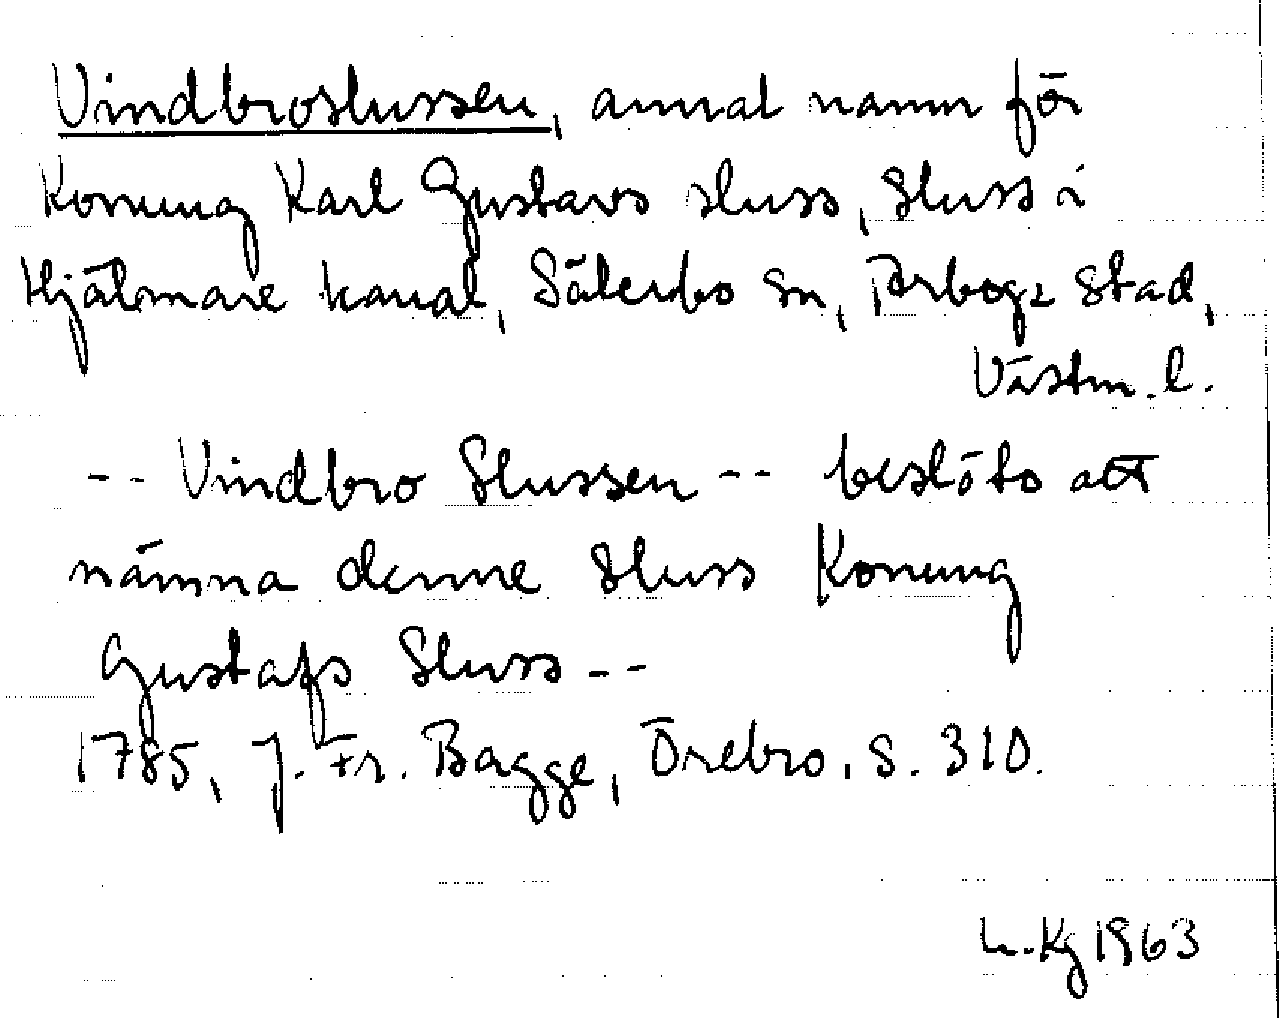 Vindbroslussen, annat namn för
Konung Karl Gustavs sluss, sluss i
Hjälmare kanal, Säterbo sn, Arboga stad,
Västm. l.
-- Vindbro Slussen -- beslöto att
nämna denne Sluss Konung
Gustafs Sluss --
1785, J. Fr. Bagge, Örebro, s. 310.
Kg 1963